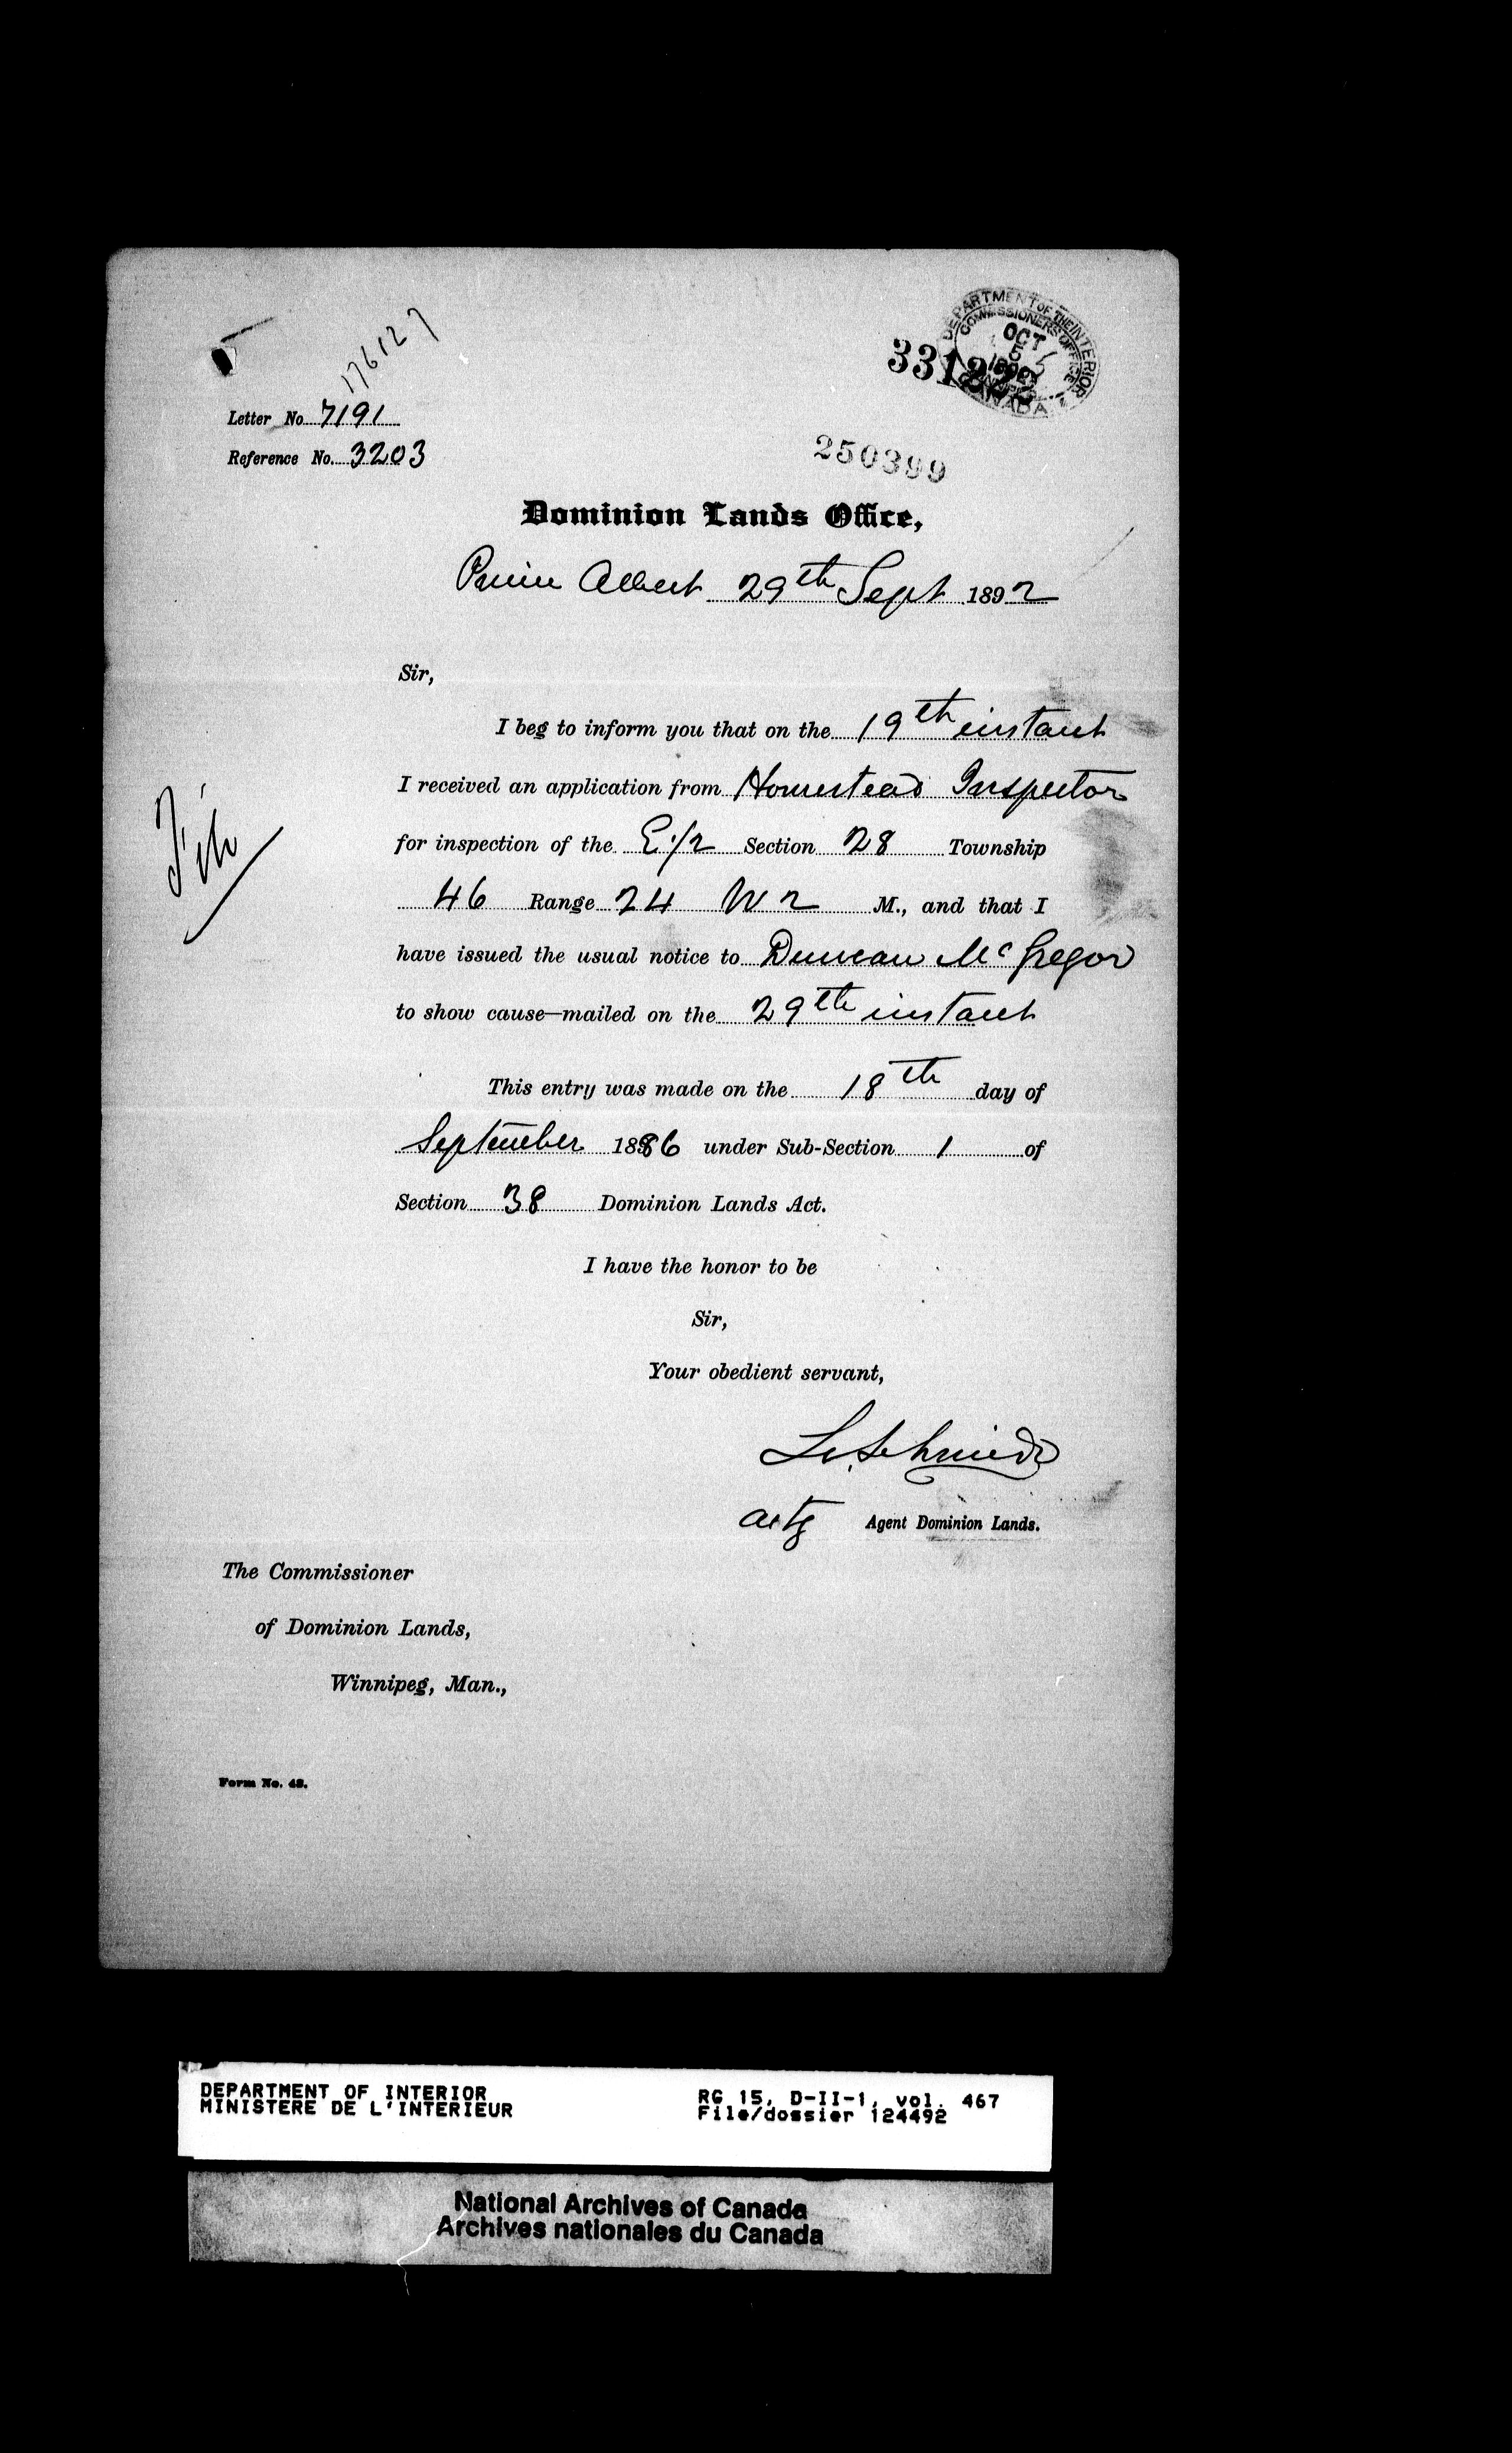 176127
DEPARTMENT OF THE INTERIOR
COMMISSIONERS OFFICE
OCT
5
CANADA
Letter No. 7191
Reference No. 3203
250399
Dominion Lands Office,
Prince Albert 29th Sept 1892
Sir,
I beg to inform you that on the 19th instant
I received an application from Homestead Inspector
for inspection of the E 1/2 Section 28 Township
46 Range 24 W 2 M., and that I
have issued the usual notice to Duncan McGregor
to show cause—mailed on the 29th instant
File
This entry was made on the 18th day of
September 1886 under Sub-Section 1 of
Section 38 Dominion Lands Act.
I have the honor to be
Sir,
Your obedient servant,
L. Schmidt
actg Agent Dominion Lands.
The Commissioner
of Dominion Lands,
Winnipeg, Man.,
Form No. 42.
DEPARTMENT OF INTERIOR RG 15, D-II-1, vol. 467
MINISTERE DE L'INTERIEUR File/dossier 124492
National Archives of Canada
Archives nationales du Canada